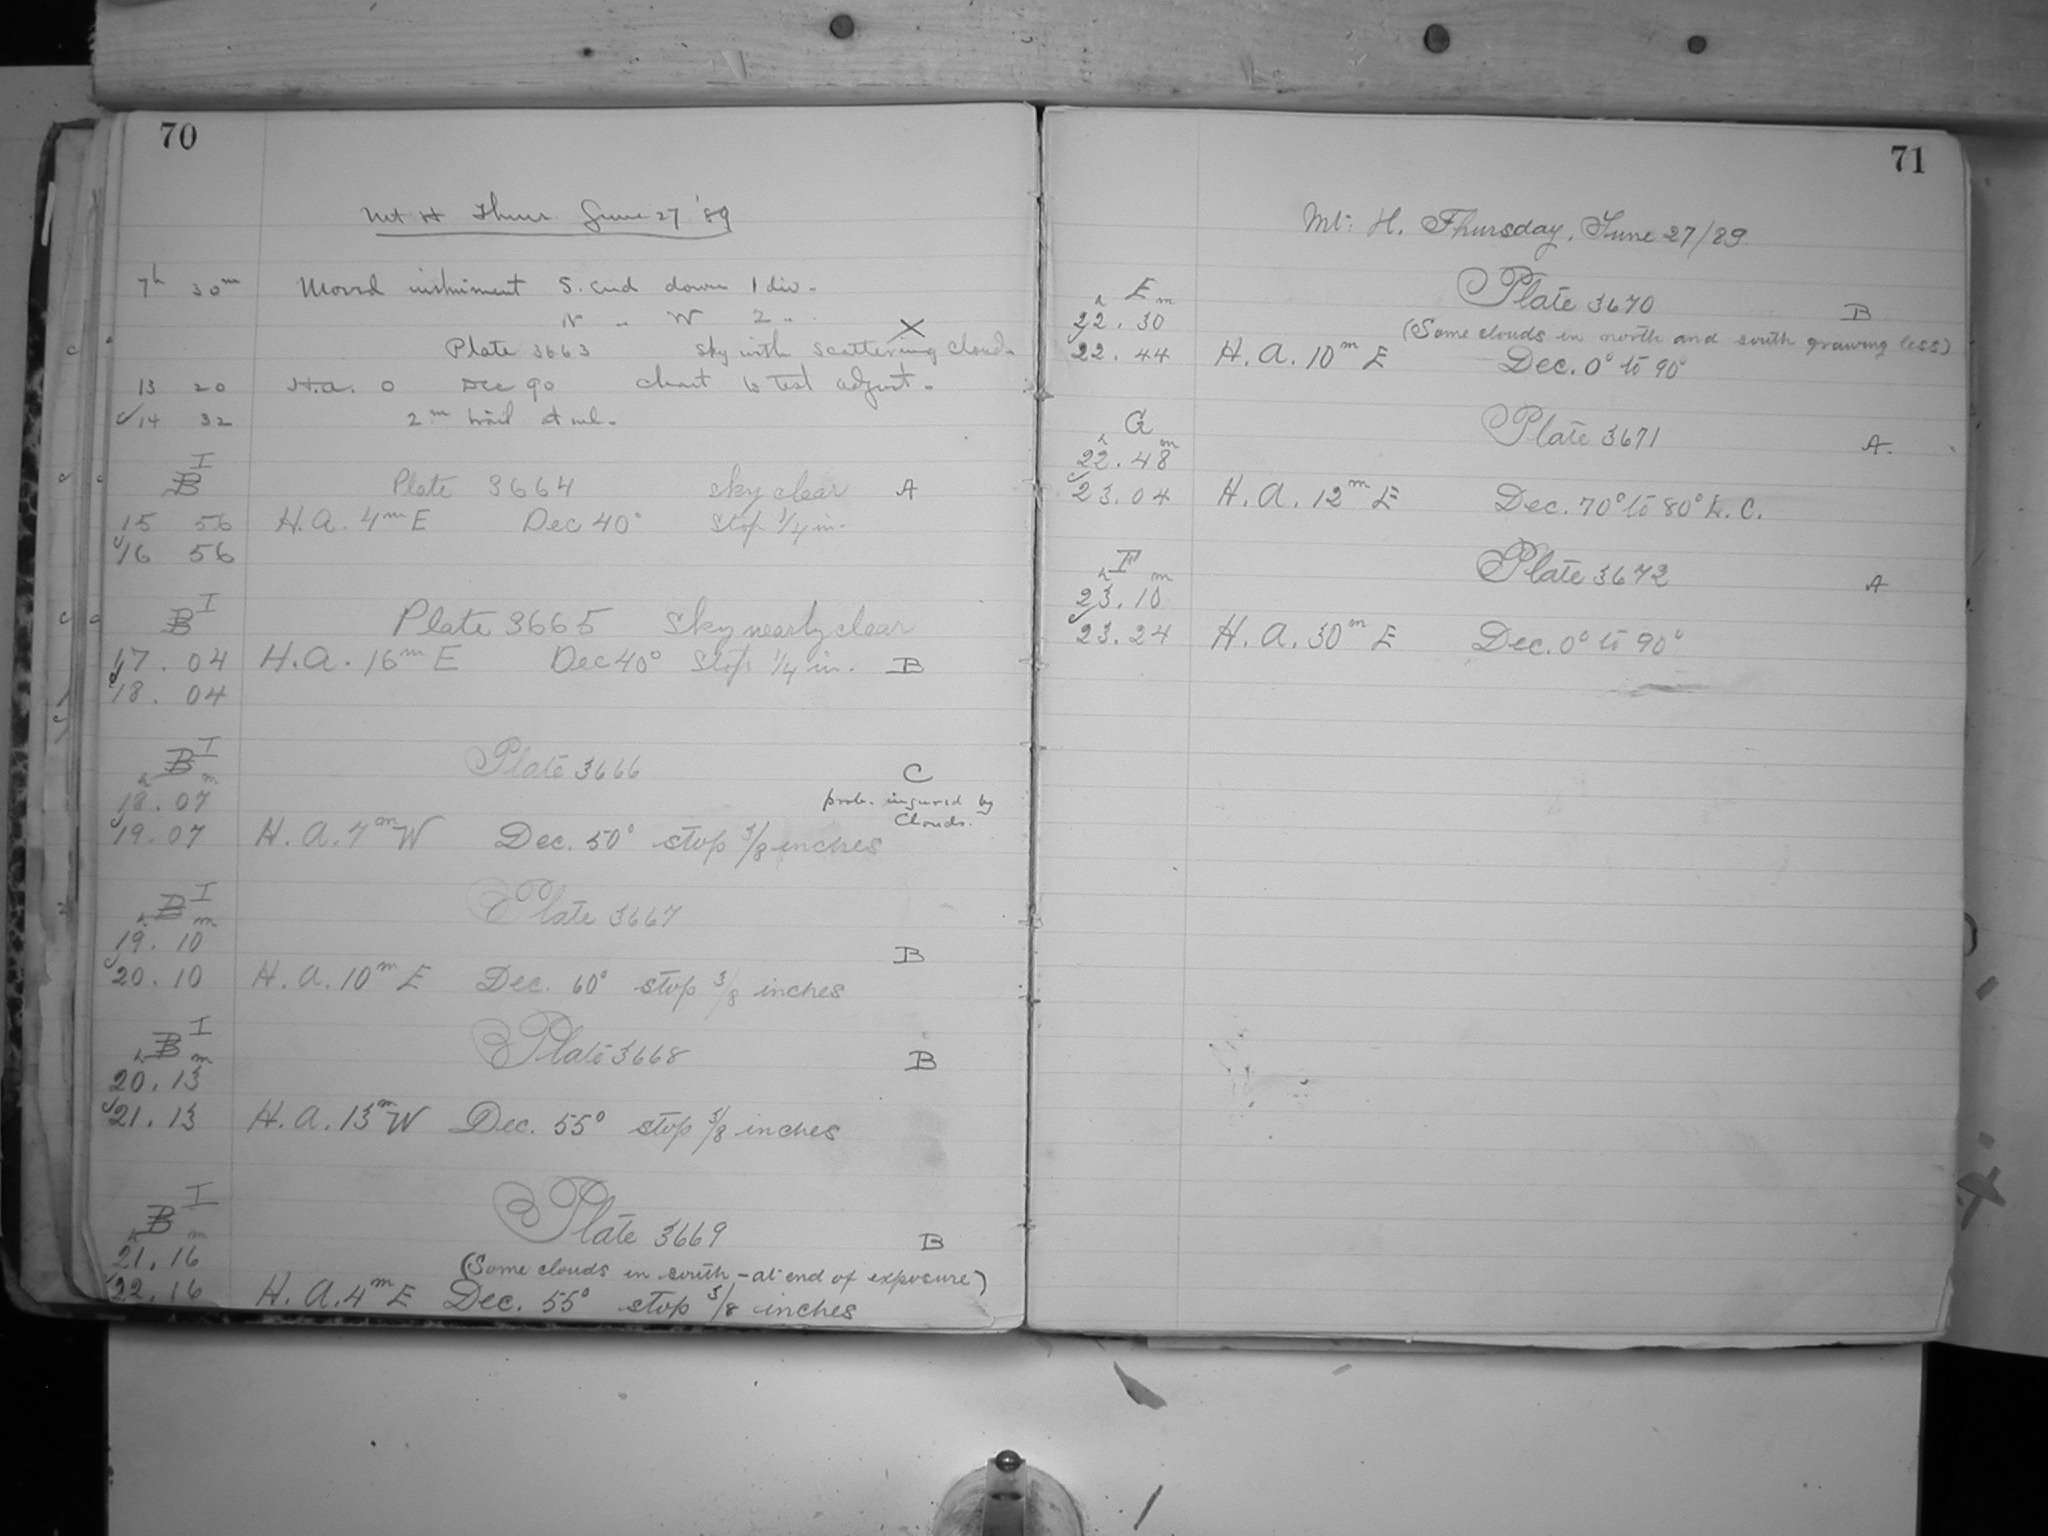 70
Mt H Thur June 27 '89
7h 30m Moved instrument S. end down 1 div.
N " W 2 "
X
Plate 3663 Sky with scattering clouds
13 20 H.a. 0 Dec 90 Chart to test adjust.
14 32 2m trail at end.
I
B
Plate 3664 Sky clear A
15 56 H.A. 4m E Dec 40° Stop 1/4 in.
16 56
B I
Plate 3665 Sky nearly clear
17.04 H.A. 16m E Dec 40° Stop 1/4 in. B
18.04
B I
Plate 3666 C
h m
18.07 prob. injured by
clouds.
19.07 H.A. 7m W Dec. 50° stop 3/8 inches
B I
Plate 3667
h m
19.10 B
20.10 H.A. 10m E Dec. 60° stop 3/8 inches
B I
Plate 3668 B
h m
20.13
21.13 H.A. 13m W Dec. 55° stop 3/8 inches
B I
Plate 3669 B
h m
21.16 (Some clouds in south - at end of exposure)
22.16 H.A. 4m E Dec. 55° stop 3/8 inches
71
Mt. H. Thursday, June 27/89
E
Plate 3670 B
h m
22.30 (Some clouds in north and south growing less)
22.44 H.A. 10m E Dec. 0° to 90°
G
Plate 3671 A
h m
22.48
23.04 H.A. 12m E Dec. 70° to 80° L.C.
F
Plate 3672 A
h m
23.10
23.24 H.A. 30m E Dec. 0° to 90°